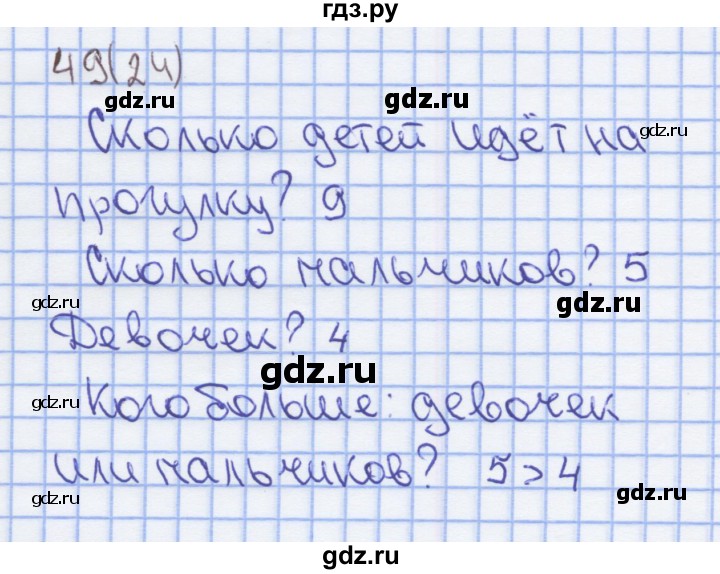 гдз.ру
49(24)
gdz.ru
gdz.ru
Сколько детей идёт на
gdz.ru
прогулку? 9
Сколько мальчиков? 5
gdz.ru
gdz.ru
Девочек? 4
gdz.ru
gdz.ru
Кого больше: девочек
или мальчиков? 5 > 4
gdz.ru
gdz.ru
gdz.ru